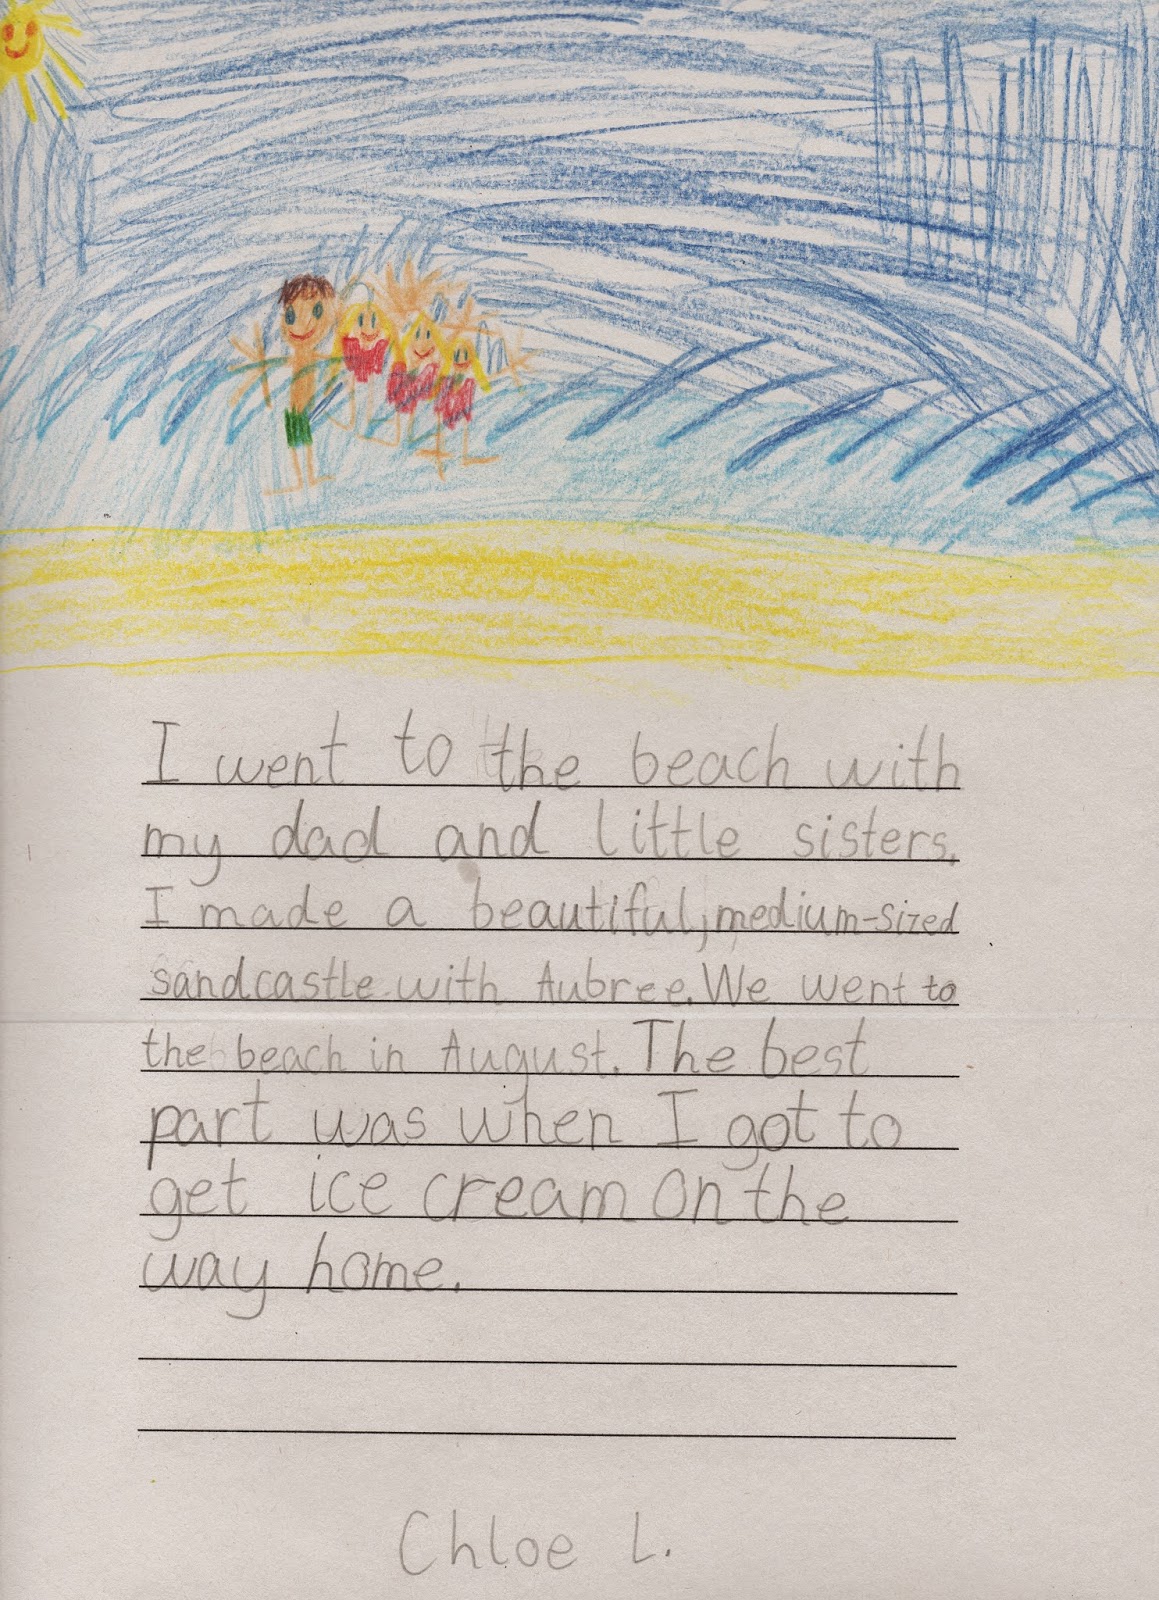 I went to the beach with
my dad and little sisters.
I made a beautiful, medium-sized
sandcastle with Aubree. We went to
the beach in August. The best
part was when I got to
get ice cream on the
way home.
Chloe L.